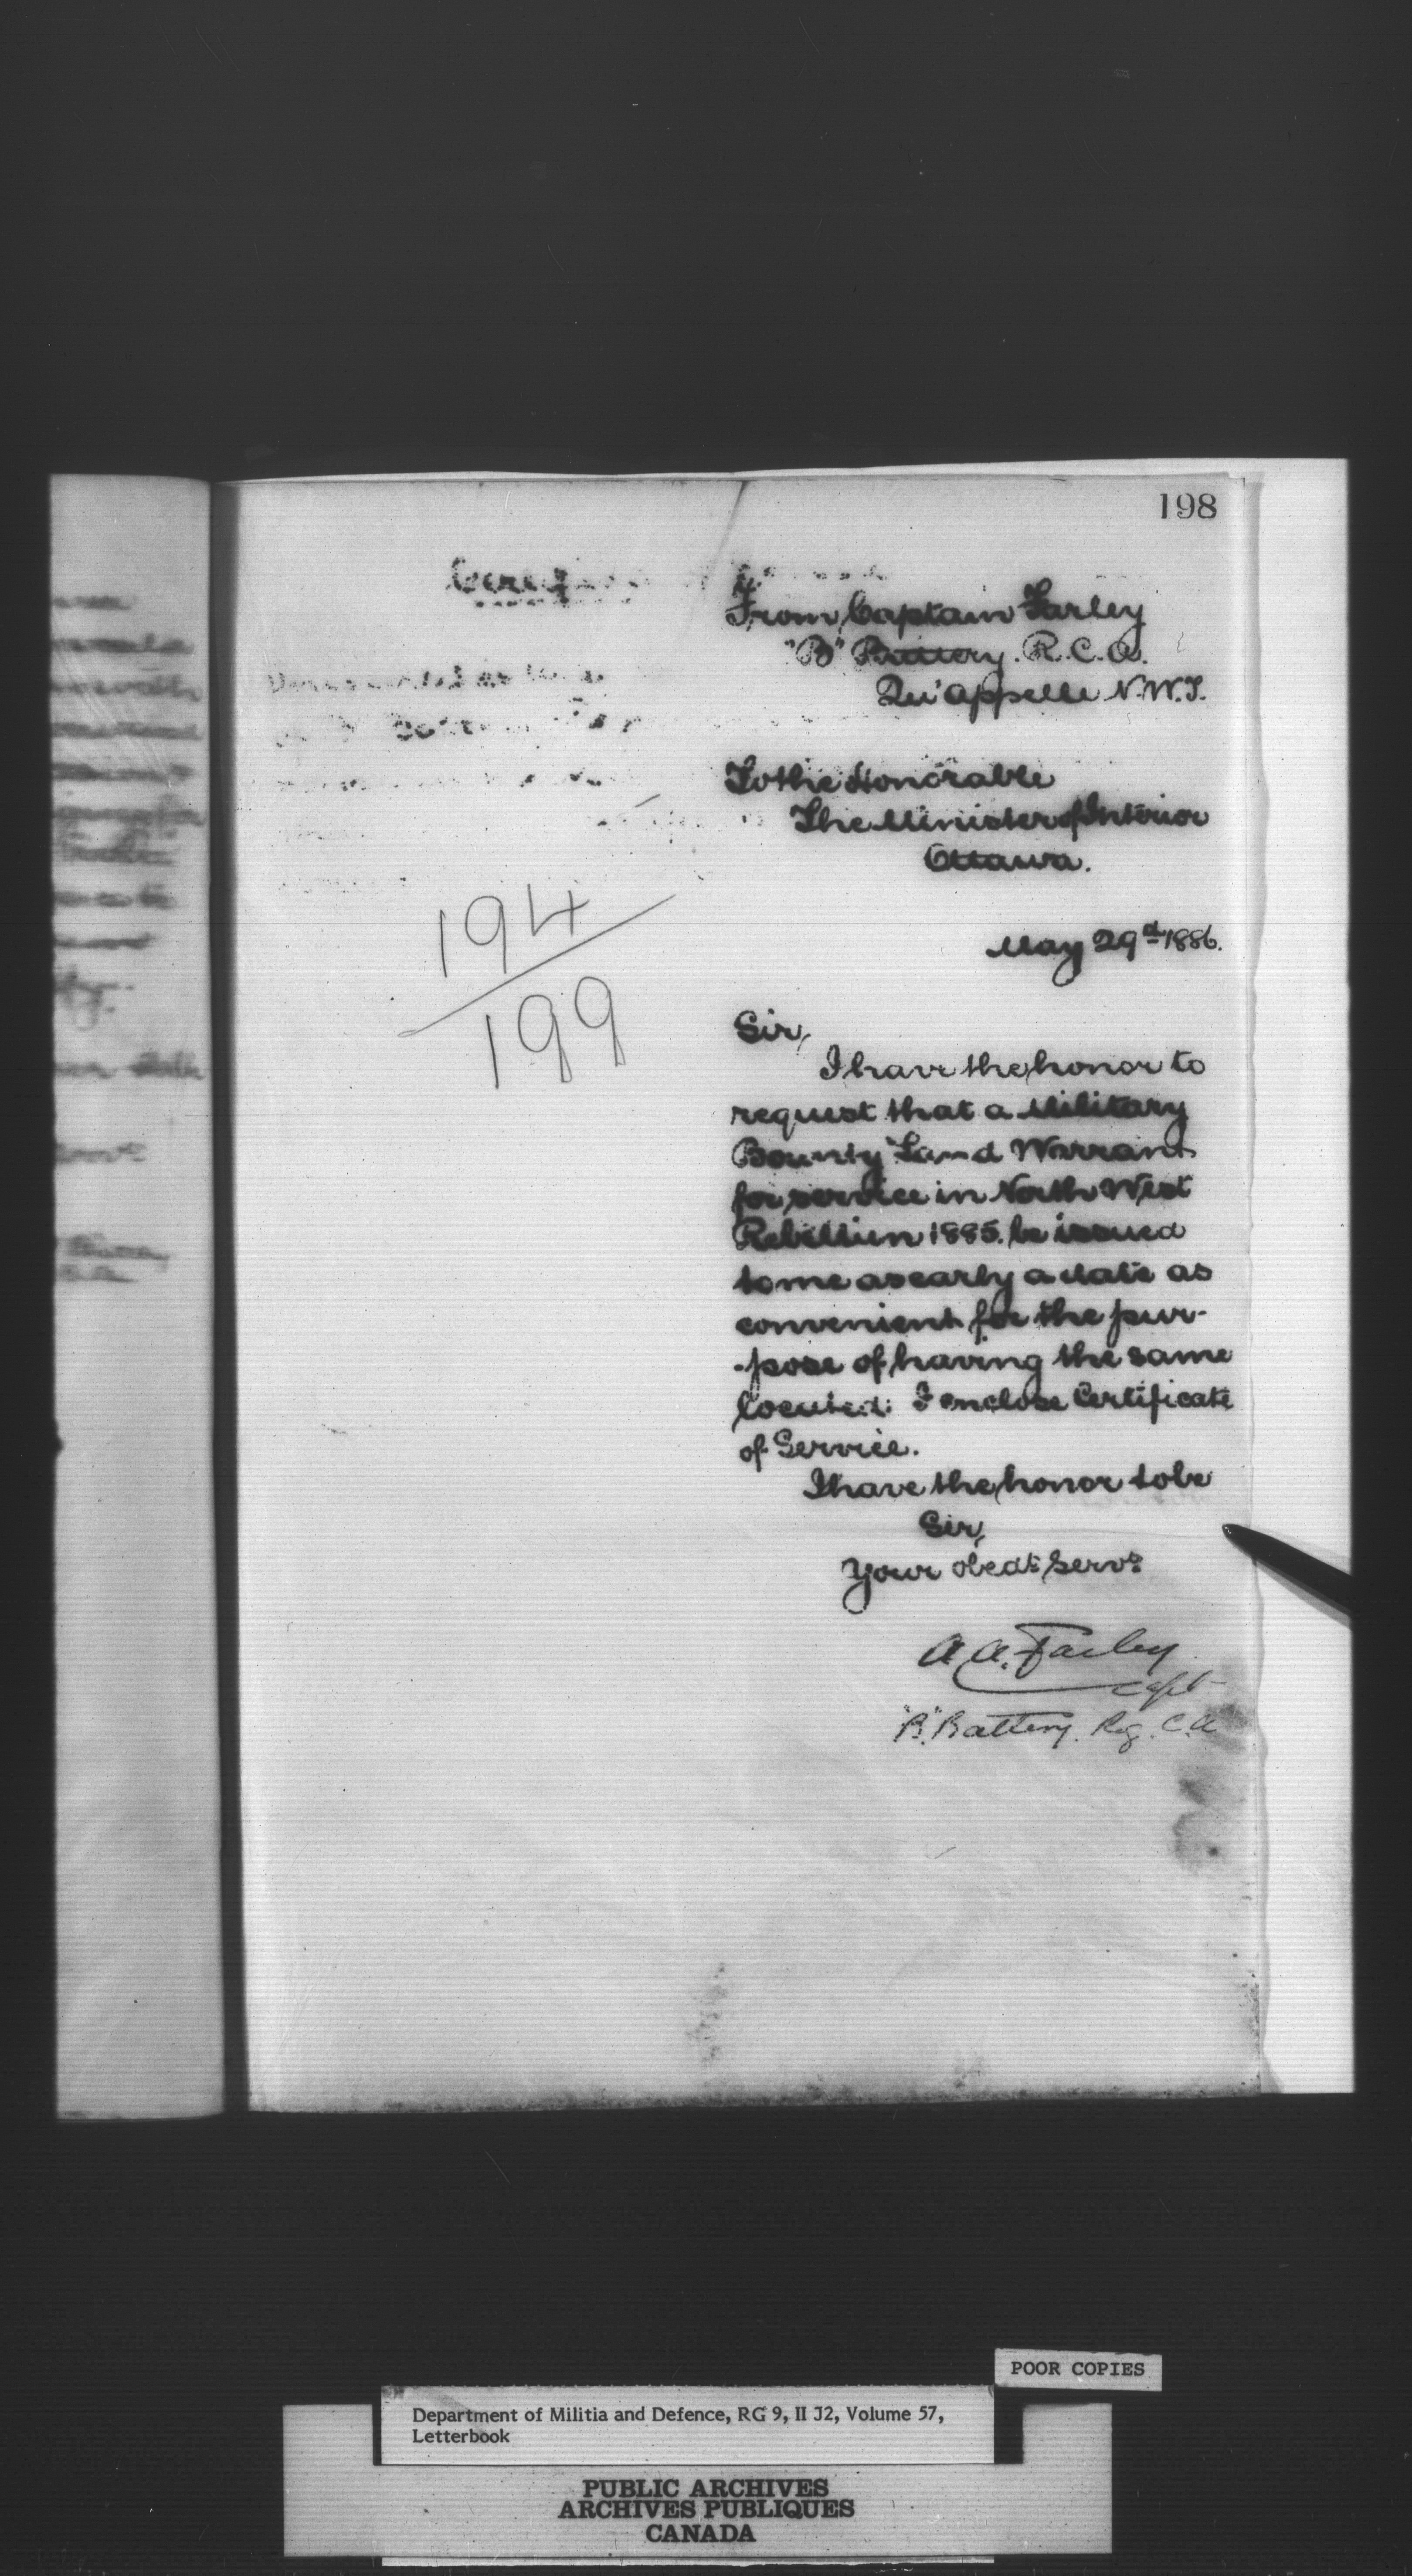 198
From Captain Farley
"B" Battery. R.C.A.
Qu'appelle N.W.T.
To the Honorable
The Minister of Interior
Ottawa.
May 29th 1886.
194
199
Sir,
I have the honor to
request that a Military
Bounty Land Warrant
for service in North West
Rebellion 1885. be issued
to me as early a date as
convenient for the pur-
-pose of having the same
located. I enclose Certificate
of Service.
I have the honor to be
Sir,
Your obedt. Servt.
A. A. Farley
Capt
"B". Battery. Reg. C.A
POOR COPIES
Department of Militia and Defence, RG 9, II J2, Volume 57,
Letterbook
PUBLIC ARCHIVES
ARCHIVES PUBLIQUES
CANADA